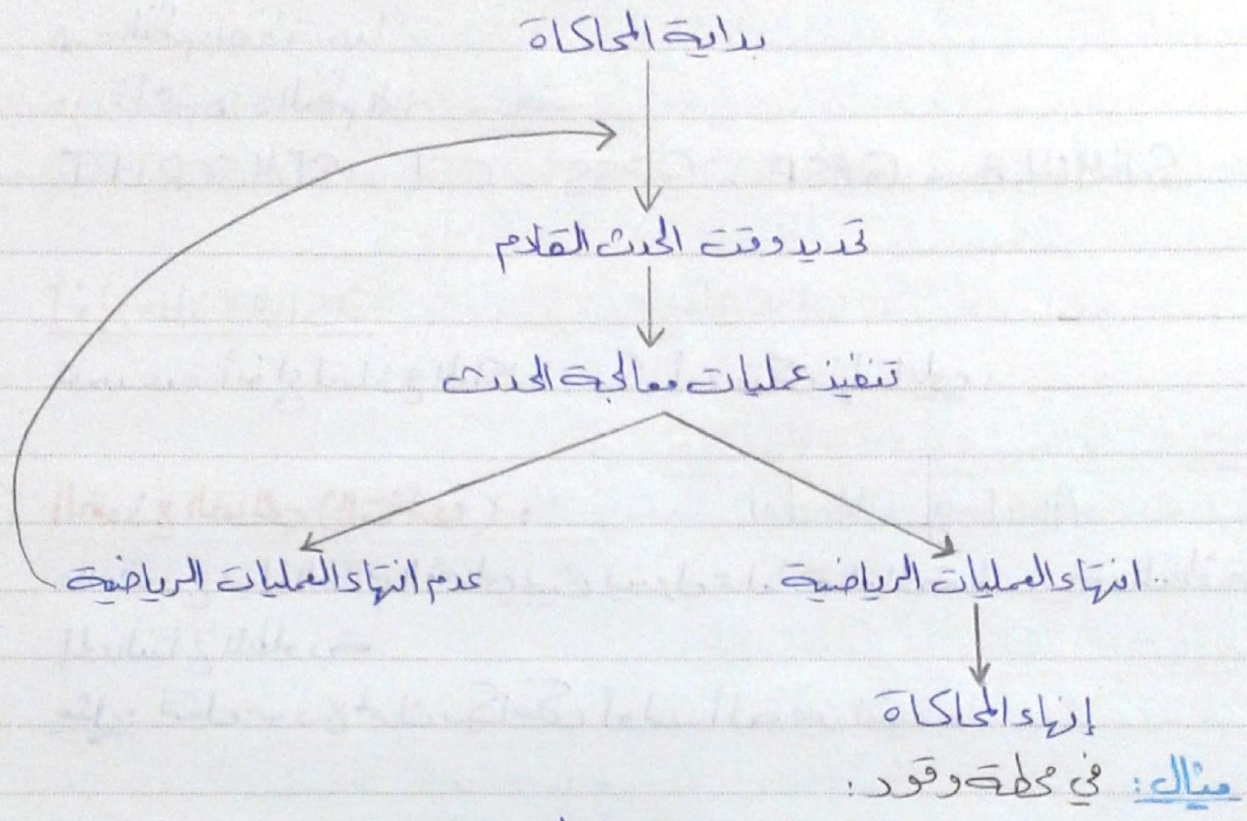 بداية المحاكاة
تحديد وقت الحدث القادم
تنفيذ عمليات معالجة الحدث
عدم انتهاء العمليات الرياضية
انتهاء العمليات الرياضية
إنهاء المحاكاة
مثال: في محطة وقود: